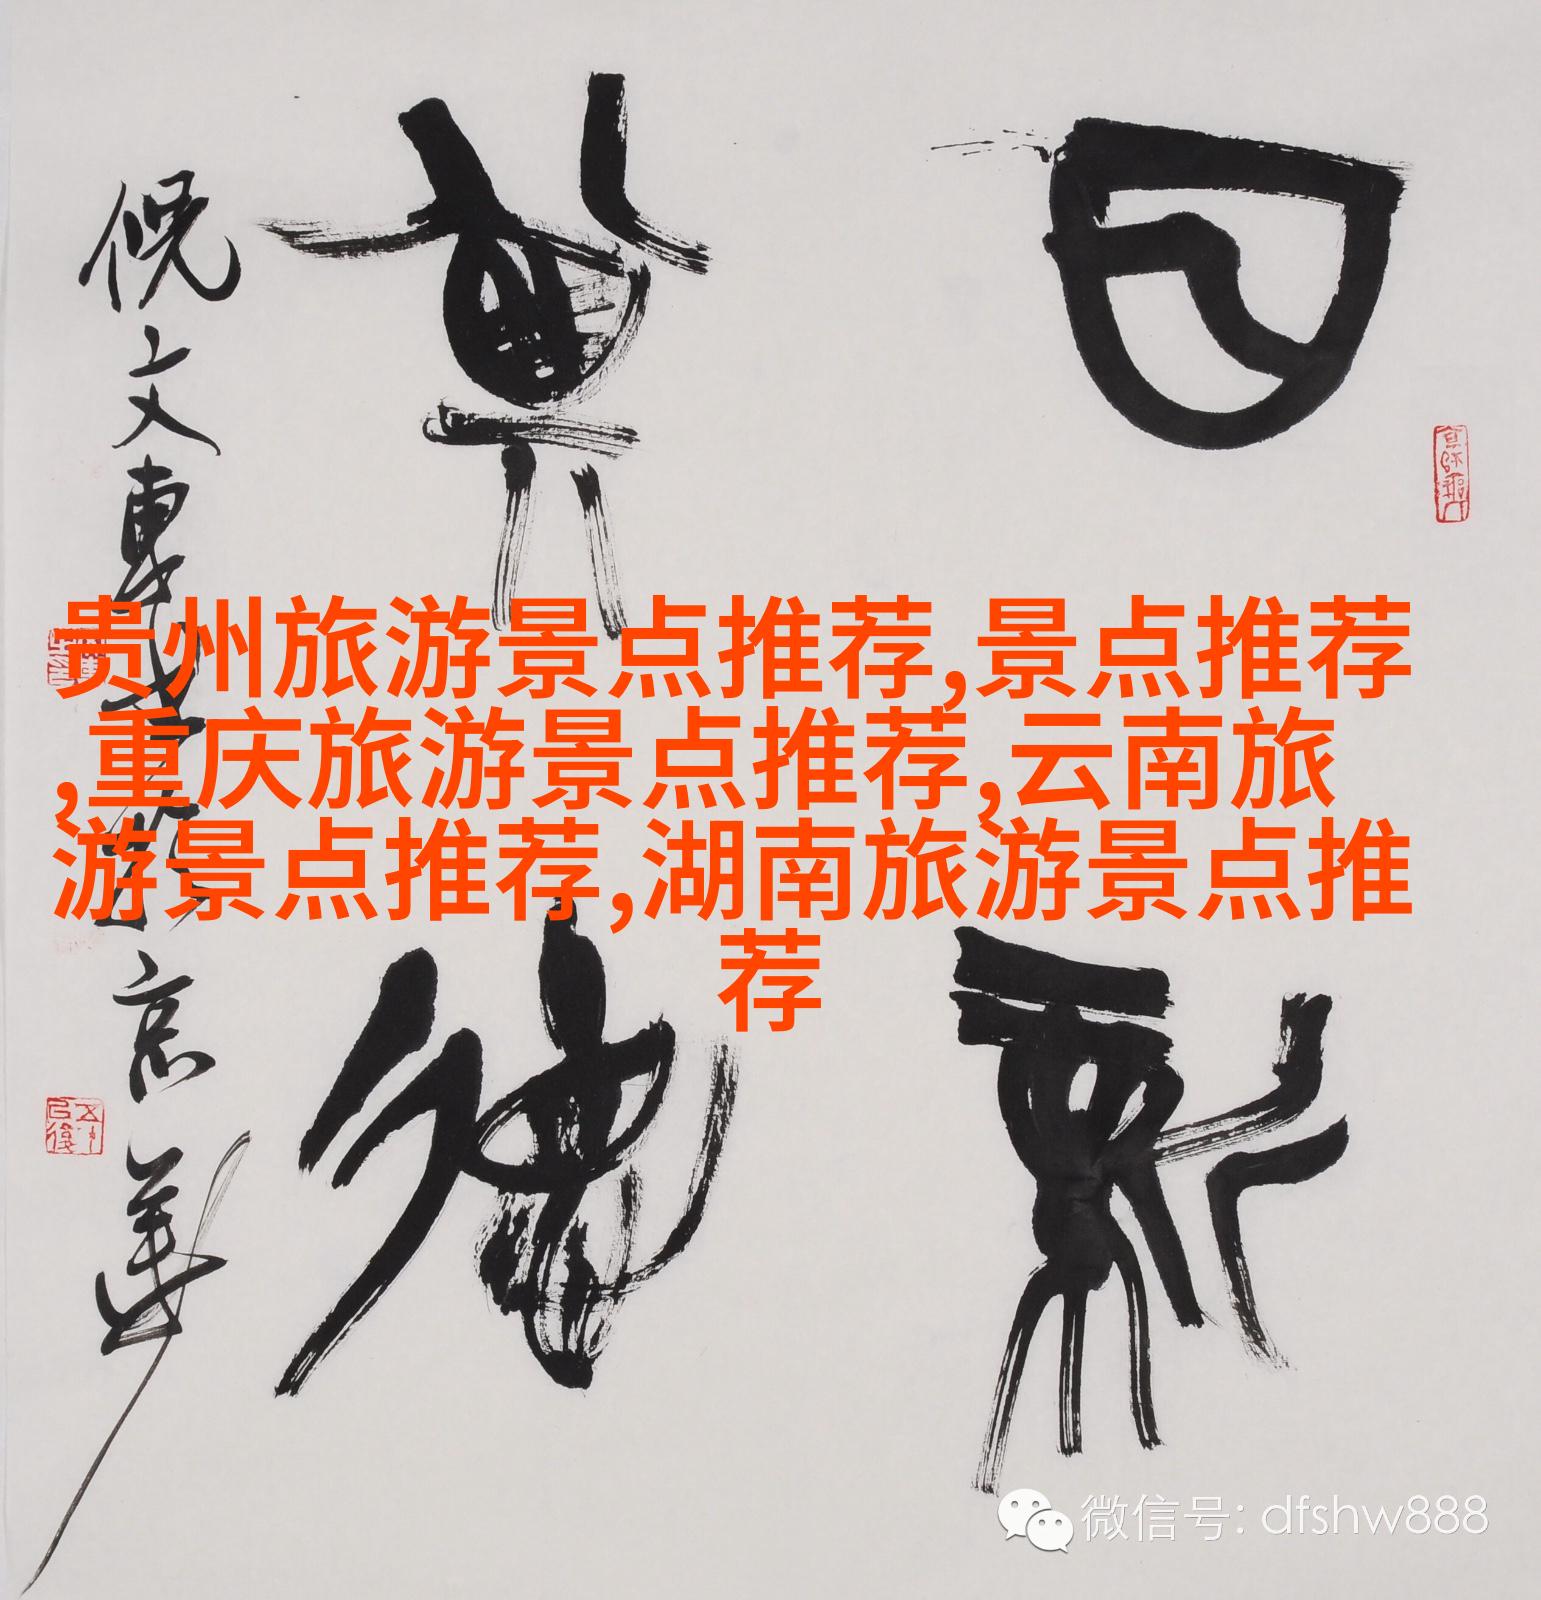 日新
其德
倪文東
京華
贵州旅游景点推荐,景点推荐
,重庆旅游景点推荐,云南旅
游景点推荐,湖南旅游景点推
荐
微信号: dfshw888